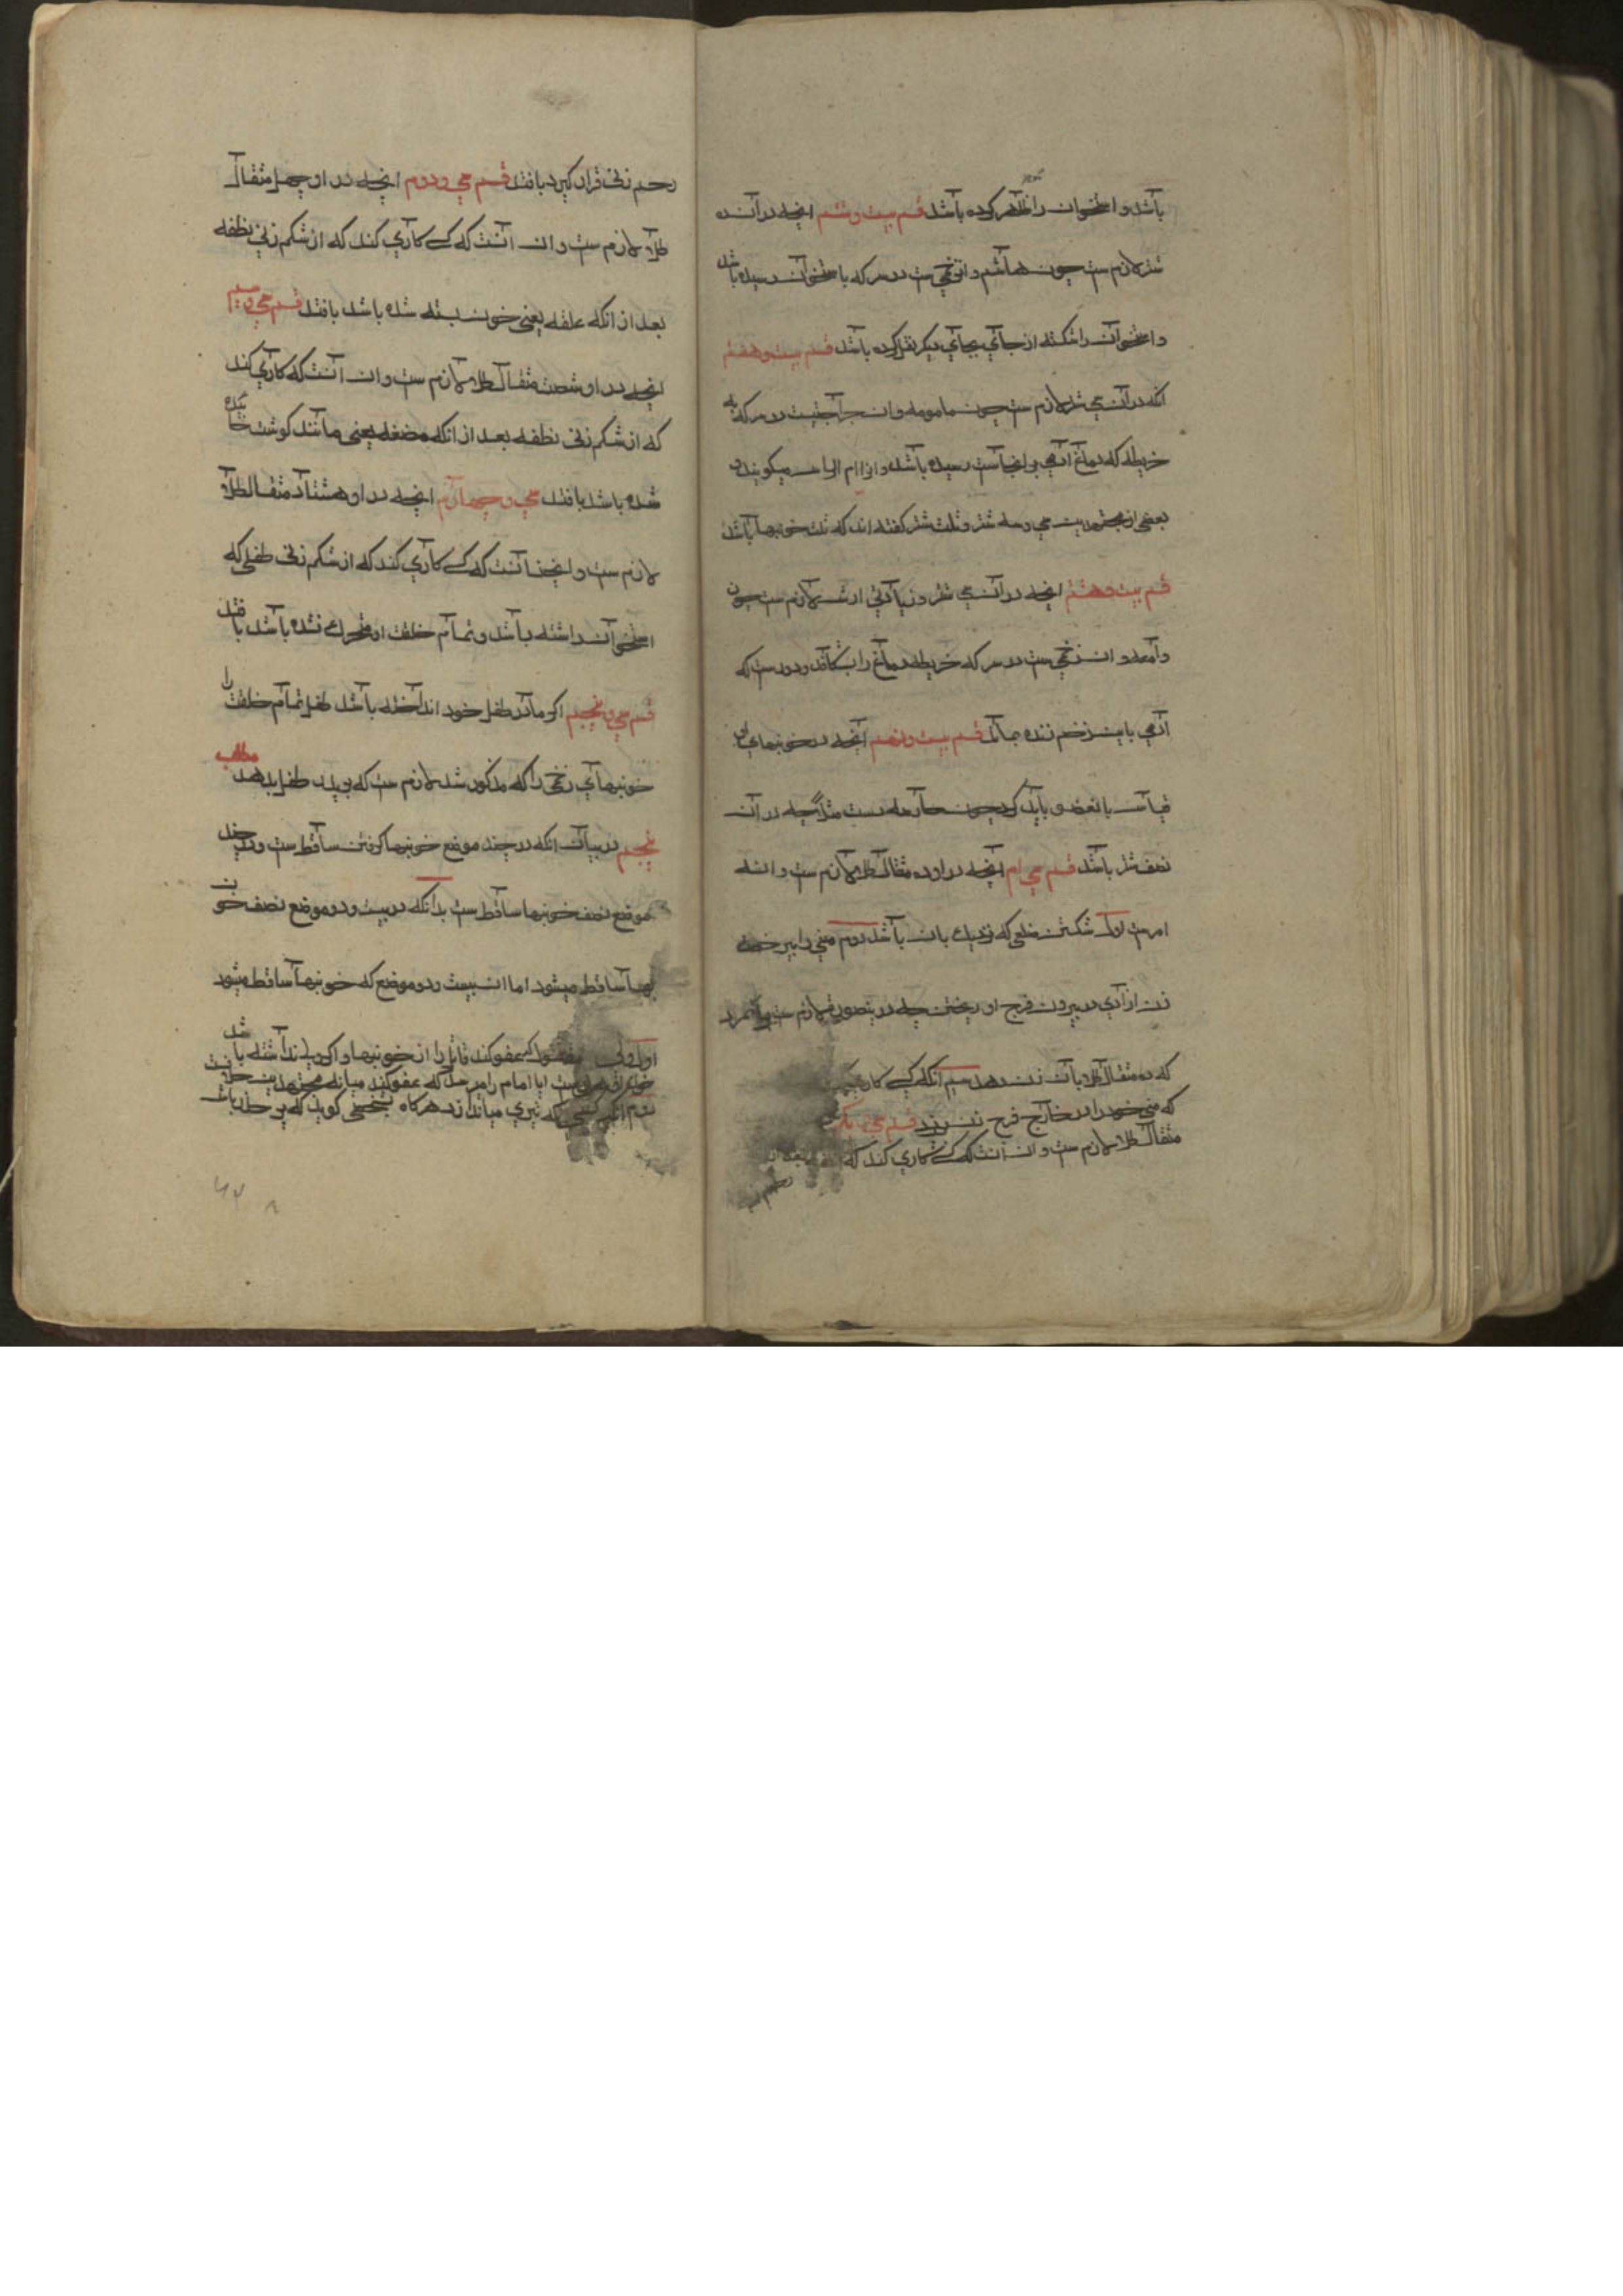 باشد و استخوان را ظاهر کرده باشد قسم بیست و ششم انچه در آن ده
شتر لازم ست چون هاشمه و آن زخمی ست در سر که باستخوان رسیده باشد
و استخوان را شکسته از جای بجای دیگر نقل کرده باشد قسم بیست و هفتم
انکه در آن سی شتر لازم ست چون مامومه و ان جراحتیست در سر که به
خریطه که دماغ آدمی در انجاست رسیده باشد و انرا ام الراس میگویند و
بعضی از مجتهدین سی و سه شتر و ثلث شتر گفته اند که ثلث خونبها باشد
قسم بیست و هشتم انچه در آن سی شتر و زیادتی ارش لازم ست چون
دامغه و ان زخمی ست در سر که خریطه دماغ را بشکافد و دورست که
آدمی باین زخم زنده بماند قسم بیست و نهم انچه در خونبهای ان
قیاس با نعضو باید کرد چون جارحه دست مثلا چه در آن
نصف شتر باشد قسم سی ام انچه در او ده مثقال طلا لازم ست و ان سه
امرست اول شکستن ضلعی که نزدیک بان باشد دوم منی را بی رخصت
زن ازادی در بیرون فرج او ریختن چه در ینصورت لازم ست بر آنمرد
که ده مثقال طلا بآن زن دهد سیم انکه کسی کاری کند
که منی خود را در خارج فرج زن ریزد قسم سی و یکم
مثقال طلا لازم ست و ان آنست که کسی کاری کند که
رحم زنی
رحم زنی قرار گیرد بافتد قسم سی و دوم انچه در او چهل مثقال
طلا لازم ست و ان آنست که کسی کاری کند که از شکم زنی نطفه
بعد از انکه علقه یعنی خون بسته شده باشد بافتد قسم سی و سیم
انچه در او شصت مثقال طلا لازم ست و ان آنست که کاری کند
که از شکم زنی نطفه بعد از انکه مضغه یعنی مانند گوشت خائیده
شده باشد بافتد سی و چهارم انچه در او هشتاد مثقال طلا
لازم ست و اینجا آنست که کسی کاری کند که از شکم زنی طفلی که
استخوان داشته باشد و تمام خلقت او متحرک نشده باشد بافتد
قسم سی و پنجم اگر مادر طفل خود انداخته باشد طفل تمام خلقت را
خونبهای زنی را که مذکور شد لازم ست که بپدر طفل بدهد مطلب
پنجم در بیان انکه در چند موضع خونبها گرفتن ساقط ست و در چند
موضع نصف خونبها ساقط ست بدانکه در بیست و دو موضع نصف خون
بها ساقط میشود اما ان بیست و دو موضع که خونبها ساقط میشود
اول ولی عفو کند قاتل را از خونبها و اگر ولی نداشته باشد
ست ایا امام را میرسد که عفو کند میانه مجتهدین خلافست
دوم که تیری میاندازد هرگاه بشخصی گوید که بر حذر باش